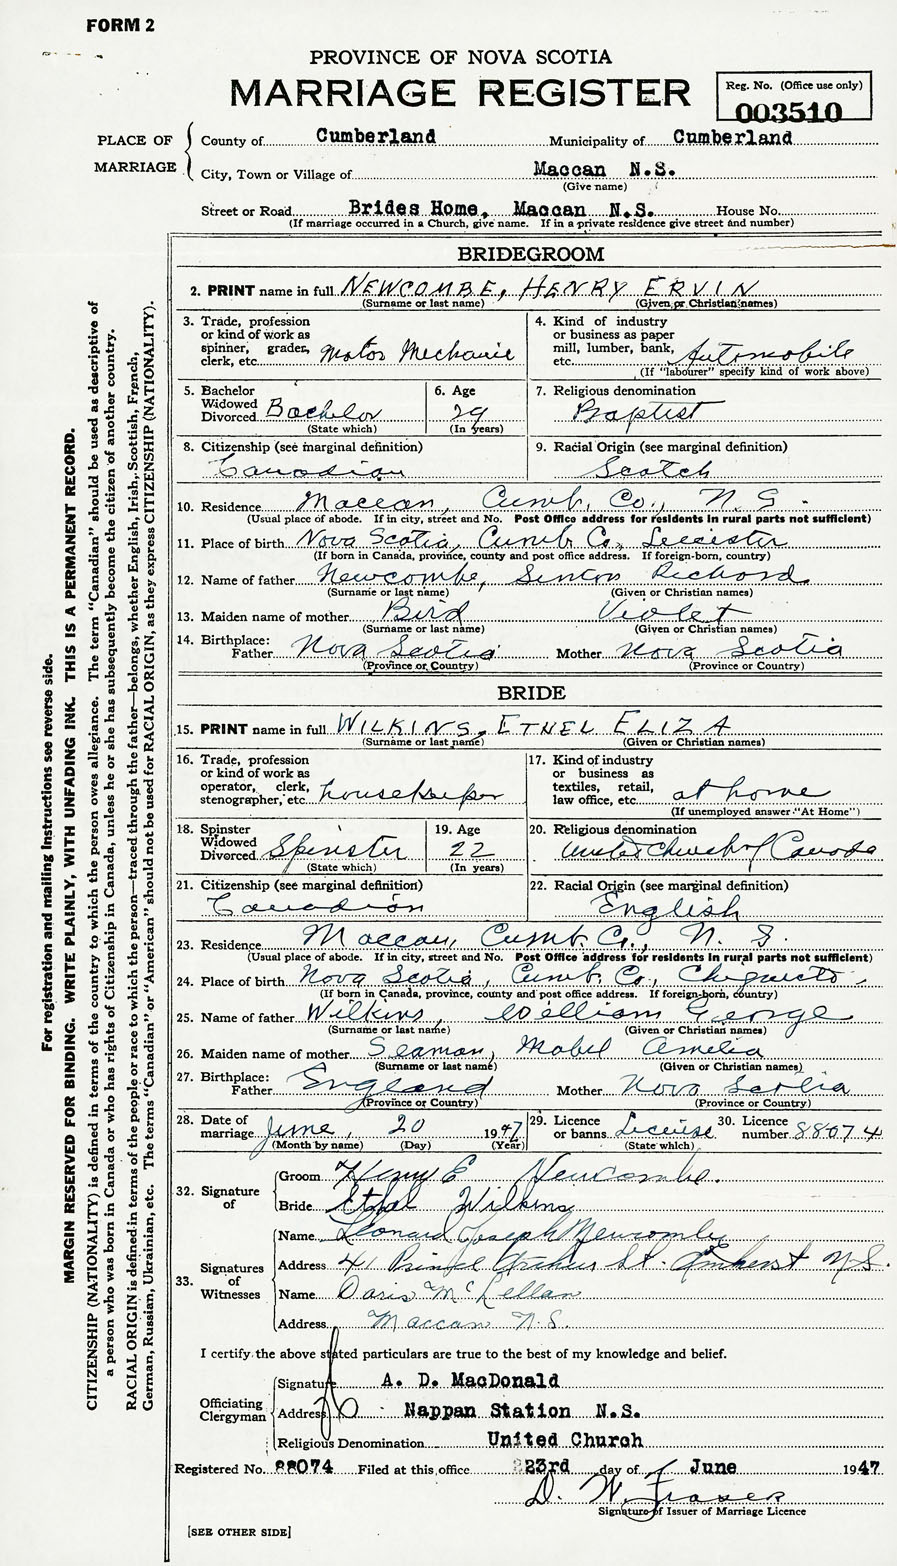 FORM 2
PROVINCE OF NOVA SCOTIA
MARRIAGE REGISTER
Reg. No. (Office use only)
003510
PLACE OF MARRIAGE
County of Cumberland Municipality of Cumberland
City, Town or Village of Maccan N.S.
(Give name)
Street or Road Brides Home, Maccan N.S. House No.
(If marriage occurred in a Church, give name. If in a private residence give street and number)
BRIDEGROOM
2. PRINT name in full NEWCOMBE, HENRY ERVIN
(Surname or last name) (Given or Christian names)
3. Trade, profession or kind of work as spinner, grader, clerk, etc. Motor Mechanic
4. Kind of industry or business as paper mill, lumber, bank, etc. Automobile
(If "labourer" specify kind of work above)
5. Bachelor Widowed Divorced Bachelor
(State which)
6. Age 29
(In years)
7. Religious denomination Baptist
8. Citizenship (see marginal definition) Canadian
9. Racial Origin (see marginal definition) Scotch
10. Residence Maccan, Cumb. Co., N.S.
(Usual place of abode. If in city, street and No. Post Office address for residents in rural parts not sufficient)
11. Place of birth Nova Scotia, Cumb Co., Leicester
(If born in Canada, province, county and post office address. If foreign-born, country)
12. Name of father Newcombe, Richard
(Surname or last name) (Given or Christian names)
13. Maiden name of mother Bird Violet
(Surname or last name) (Given or Christian names)
14. Birthplace: Father Nova Scotia Mother Nova Scotia
(Province or Country) (Province or Country)
BRIDE
15. PRINT name in full WILKINS, ETHEL ELIZA
(Surname or last name) (Given or Christian names)
16. Trade, profession or kind of work as operator, clerk, stenographer, etc. housekeeper
17. Kind of industry or business as textiles, retail, law office, etc. at home
(If unemployed answer "At Home")
18. Spinster Widowed Divorced Spinster
(State which)
19. Age 22
(In years)
20. Religious denomination United Church of Canada
21. Citizenship (see marginal definition) Canadian
22. Racial Origin (see marginal definition) English
23. Residence Maccan, Cumb. Co., N.S.
(Usual place of abode. If in city, street and No. Post Office address for residents in rural parts not sufficient)
24. Place of birth Nova Scotia, Cumb. Co., Chignecto
(If born in Canada, province, county and post office address. If foreign-born, country)
25. Name of father Wilkins, William George
(Surname or last name) (Given or Christian names)
26. Maiden name of mother Seaman, Mabel Amelia
(Surname or last name) (Given or Christian names)
27. Birthplace: Father England Mother Nova Scotia
(Province or Country) (Province or Country)
28. Date of marriage June, 20 1947
(Month by name) (Day) (Year)
29. Licence or banns License
(State which)
30. Licence number 88074
32. Signature of
Groom Henry E Newcombe.
Bride Ethel Wilkins
33. Signatures of Witnesses
Name Leonard Joseph Newcombe
Address 41 Prince Arthur St. Amherst N.S.
Name Doris McLellan
Address Maccan N.S.
I certify the above stated particulars are true to the best of my knowledge and belief.
Officiating Clergyman
Signature A. D. MacDonald
Address Nappan Station N.S.
Religious Denomination United Church
Registered No. 88074 Filed at this office 23rd day of June 1947
D. W. Fraser
Signature of Issuer of Marriage Licence
[SEE OTHER SIDE]
For registration and mailing instructions see reverse side.
MARGIN RESERVED FOR BINDING. WRITE PLAINLY, WITH UNFADING INK. THIS IS A PERMANENT RECORD.
CITIZENSHIP (NATIONALITY) is defined in terms of the country to which the person owes allegiance. The term "Canadian" should be used as descriptive of
a person who was born in Canada or who has rights of Citizenship in Canada, unless he or she has subsequently become the citizen of another country.
RACIAL ORIGIN is defined in terms of the people or race to which the person—traced through the father—belongs, whether English, Irish, Scottish, French,
German, Russian, Ukrainian, etc. The terms "Canadian" or "American" should not be used for RACIAL ORIGIN, as they express CITIZENSHIP (NATIONALITY).